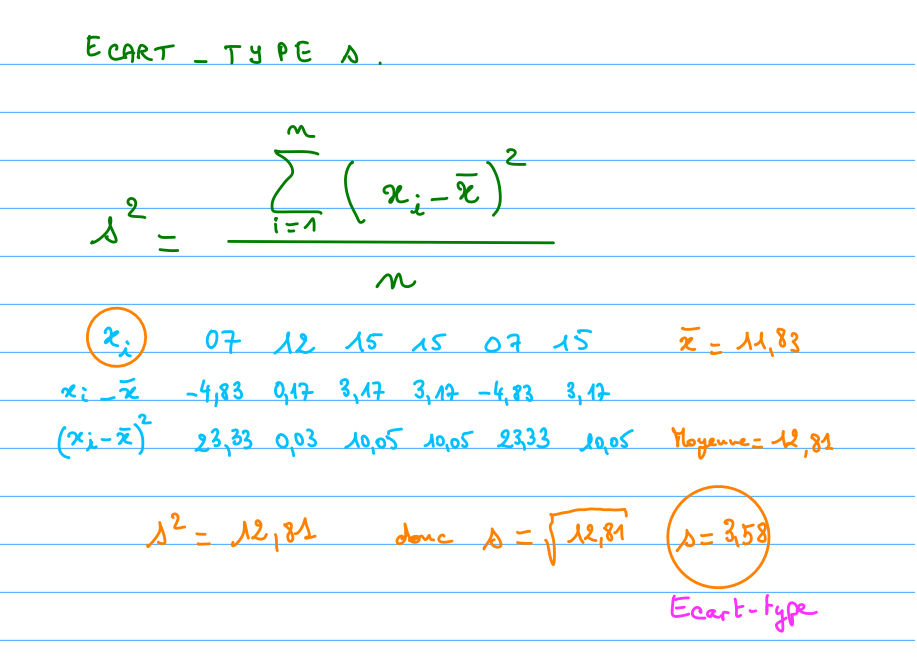 ECART-TYPE s.
s² = \frac{\sum_{i=1}^{n} (x_i - \bar{x})^2}{n}
x_i 07 12 15 15 07 15 \bar{x} = 11,83
x_i - \bar{x} -4,83 0,17 3,17 3,17 -4,83 3,17
(x_i - \bar{x})² 23,33 0,03 10,05 10,05 23,33 10,05 Moyenne = 12,81
s² = 12,81 donc s = \sqrt{12,81} s = 3,58
Ecart-type